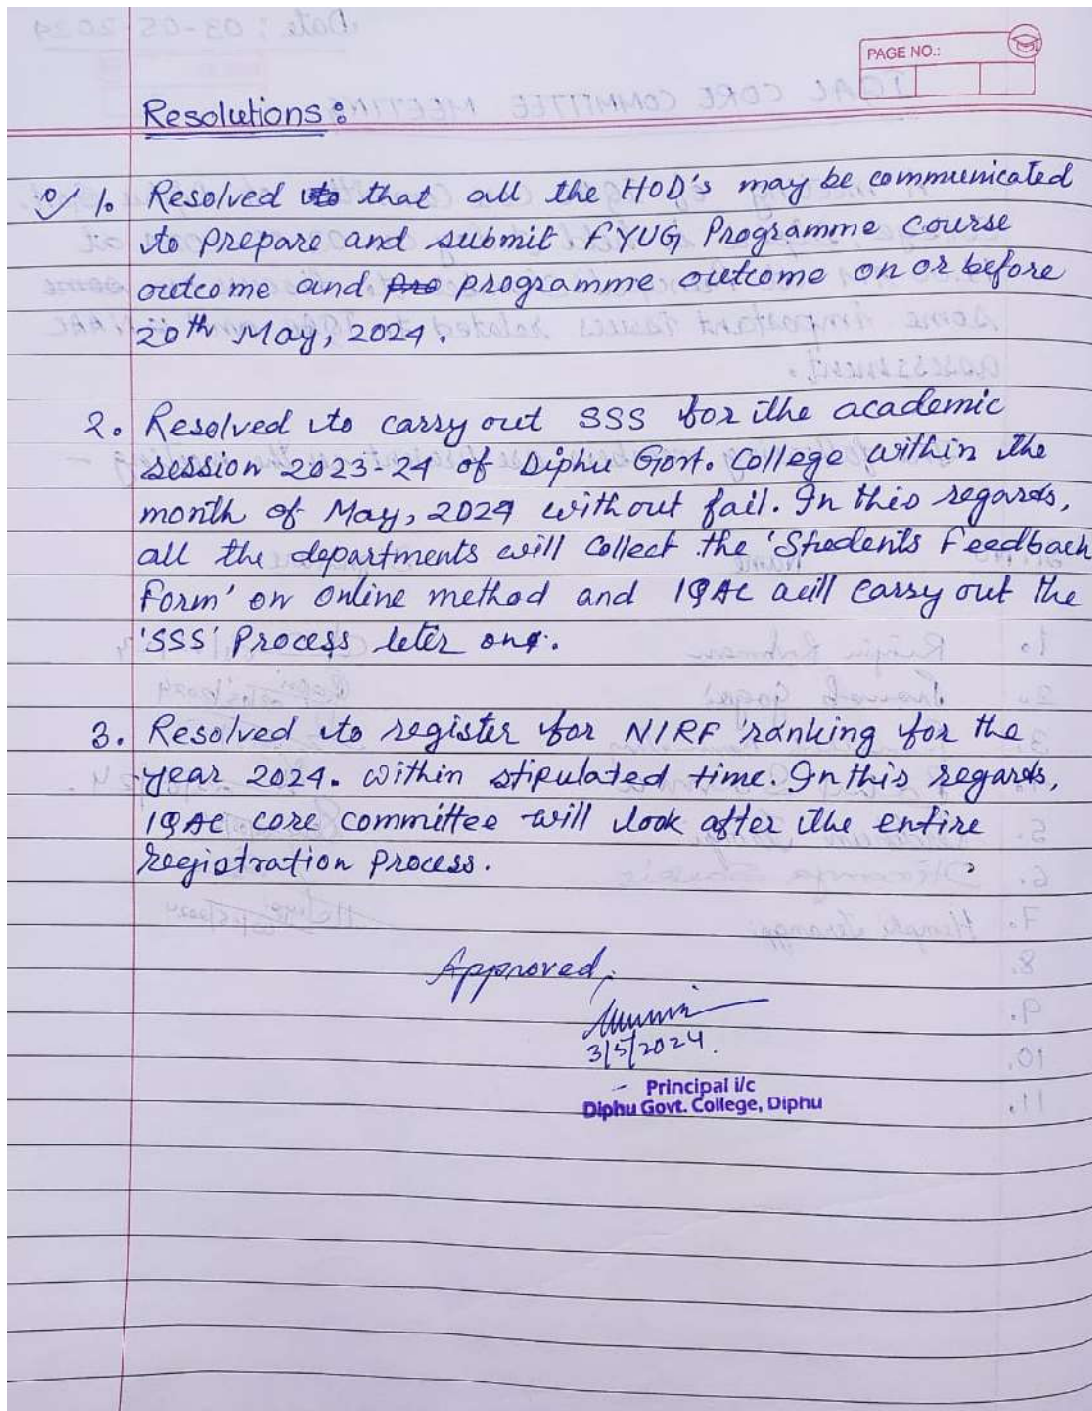 PAGE NO.:
Resolutions :
1. Resolved that all the HOD's may be communicated
to prepare and submit FYUG Programme Course
outcome and programme outcome on or before
20th May, 2024.
2. Resolved to carry out SSS for the academic
session 2023-24 of Diphu Govt. College within the
month of May, 2024 without fail. In this regards,
all the departments will collect the 'Students Feedback
Form' on online method and IQAC will carry out the
'SSS' Process leter on.
3. Resolved to register for NIRF ranking for the
year 2024. within stipulated time. In this regards,
IQAC core committee will look after the entire
registration process.
Approved,
3/5/2024.
Principal i/c
Diphu Govt. College, Diphu